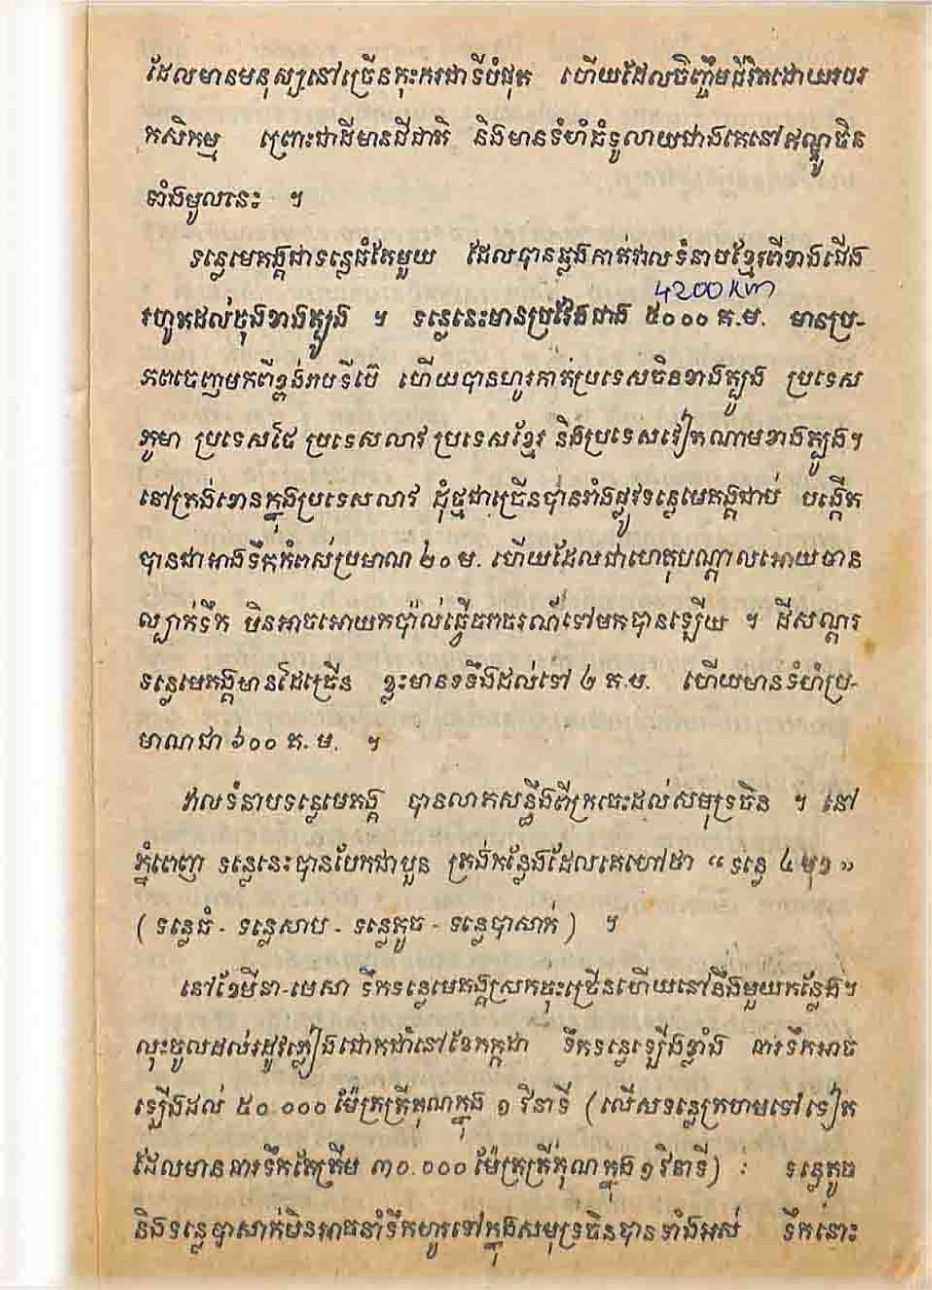 ដែលមានមនុស្សនៅច្រើនកុះករជាទីបំផុត ហើយដែលចិញ្ចឹមជីវិតដោយរបរ
កសិកម្ម ព្រោះជាដីមានជីជាតិ និងមានទំហំធំទូលាយជាងគេនៅឥណ្ឌូចិន
ទាំងមូលនេះ ។
ទន្លេមេគង្គជាទន្លេធំតែមួយ ដែលបានឆ្លងកាត់វាលទំនាបខ្មែរពីខាងជើង
4200 Km
រហូតដល់ចុងខាងត្បូង ។ ទន្លេនេះមានប្រវែងជាង ៥០០០ គ.ម. មានប្រ-
ភពចេញមកពីខ្ពង់រាបទីបេ៍ ហើយបានហូរកាត់ប្រទេសចិនខាងត្បូង ប្រទេស
ភូមា ប្រទេសថៃ ប្រទេសលាវ ប្រទេសខ្មែរ និងប្រទេសវៀតណាមខាងត្បូង។
នៅត្រង់ខោនក្នុងប្រទេសលាវ ដុំថ្មជាច្រើនបានរាំងផ្លូវទន្លេមេគង្គជាប់ បង្កើត
បានជាអាងទឹកកំពស់ប្រមាណ ២០ ម. ហើយដែលជាហេតុបណ្ដាលអោយមាន
ល្បាក់ទឹក មិនអាចអោយកប៉ាល់ធ្វើចរាចរណ៍ទៅមកបានឡើយ ។ ដីសណ្ដរ
ទន្លេមេគង្គមានដៃច្រើន ខ្លះមានទទឹងដល់ទៅ ២ គ.ម. ហើយមានទំហំប្រ-
មាណជា ៦០០ គ. ម. ។
វាលទំនាបទន្លេមេគង្គ បានលាតសន្ធឹងពីក្រចេះដល់សមុទ្រចិន ។ នៅ
ភ្នំពេញ ទន្លេនេះបានបែកជាបួន ត្រង់កន្លែងដែលគេហៅថា “ ទន្លេ ៤ មុខ ”
( ទន្លេធំ - ទន្លេសាប - ទន្លេតូច - ទន្លេបាសាក់ ) ។
នៅខែមីនា-មេសា ទឹកទន្លេមេគង្គស្រកចុះច្រើនហើយនៅនឹងមួយកន្លែង។
លុះចូលដល់រដូវភ្លៀងជោកជាំនៅខែកក្កដា ទឹកទន្លេឡើងខ្លាំង ធារទឹកអាច
ឡើងដល់ ៥០.០០០ ម៉ែត្រត្រីគុណក្នុង ១ វិនាទី (លើសទន្លេក្រហមទៅទៀត
ដែលមានធារទឹកតែត្រឹម ៣០.០០០ ម៉ែត្រត្រីគុណក្នុង ១ វិនាទី) : ទន្លេតូច
និងទន្លេបាសាក់មិនអាចនាំទឹកហូរទៅក្នុងសមុទ្រចិនបានទាំងអស់ ទឹកនោះ